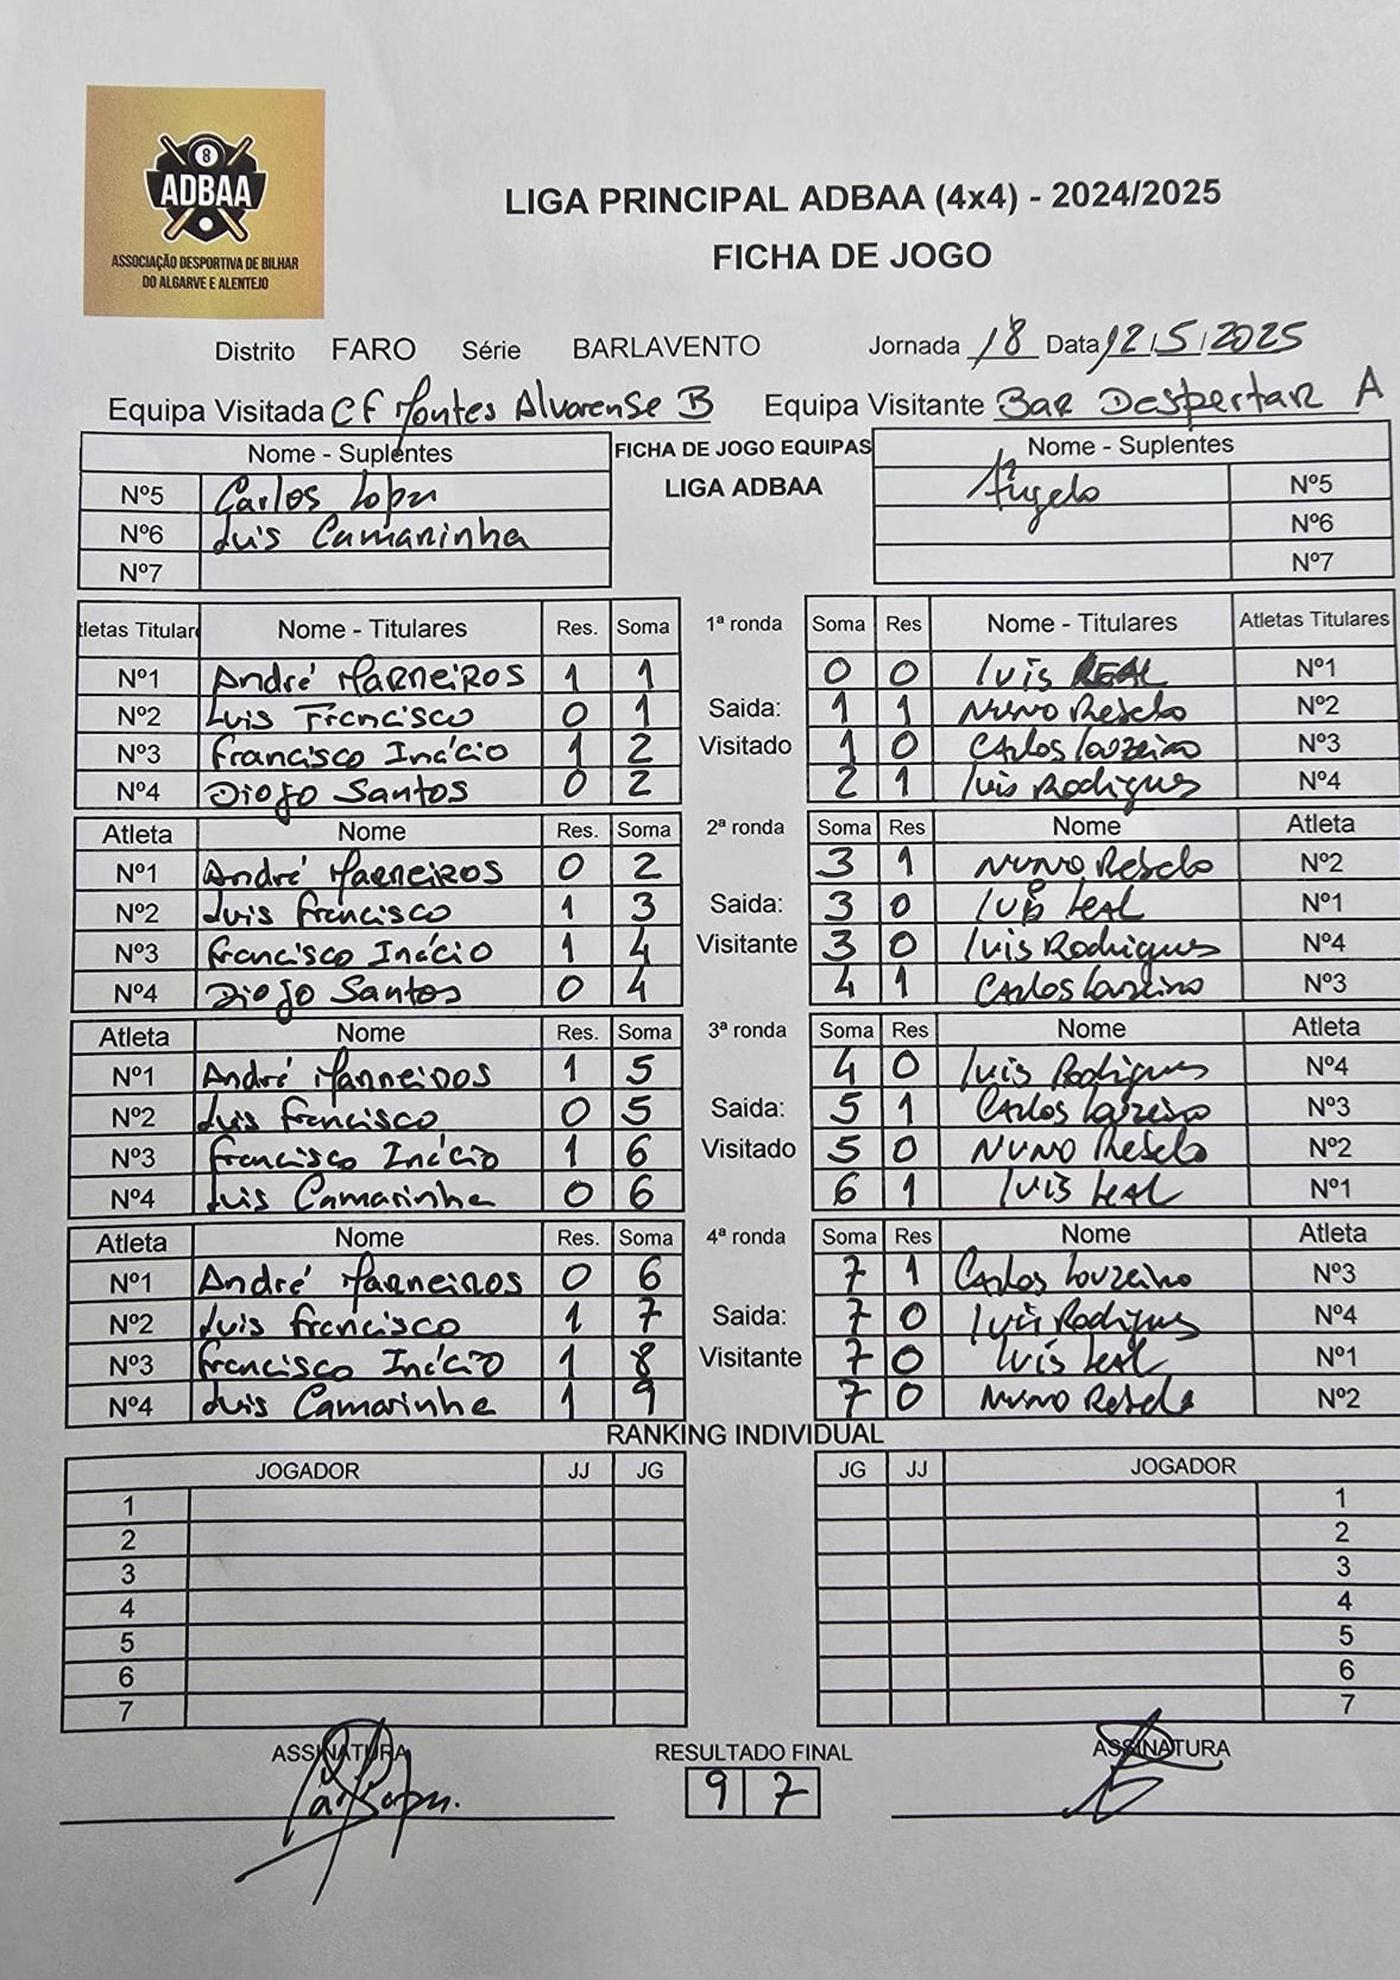 8
ADBAA
ASSOCIAÇÃO DESPORTIVA DE BILHAR
DO ALGARVE E ALENTEJO
LIGA PRINCIPAL ADBAA (4x4) - 2024/2025
FICHA DE JOGO
Distrito FARO Série BARLAVENTO Jornada 18 Data 12/5/2025
Equipa Visitada CF Montes Alvorense B Equipa Visitante Bar Despertar A
Nome - Suplentes FICHA DE JOGO EQUIPAS Nome - Suplentes
Nº5 Carlos Lopes LIGA ADBAA Ângelo Nº5
Nº6 Luis Camarinha Nº6
Nº7 Nº7
tletas Titulare Nome - Titulares Res. Soma 1ª ronda Soma Res Nome - Titulares Atletas Titulares
Nº1 André Marneiros 1 1 0 0 Luis REAL Nº1
Nº2 Luis Francisco 0 1 Saida: 1 1 Nuno Rebelo Nº2
Nº3 Francisco Inácio 1 2 Visitado 1 0 Carlos Louzeiro Nº3
Nº4 Diogo Santos 0 2 2 1 Luis Rodrigues Nº4
Atleta Nome Res. Soma 2ª ronda Soma Res Nome Atleta
Nº1 André Marneiros 0 2 3 1 Nuno Rebelo Nº2
Nº2 Luis Francisco 1 3 Saida: 3 0 Luis Leal Nº1
Nº3 Francisco Inácio 1 4 Visitante 3 0 Luis Rodrigues Nº4
Nº4 Diogo Santos 0 4 4 1 Carlos Louzeiro Nº3
Atleta Nome Res. Soma 3ª ronda Soma Res Nome Atleta
Nº1 André Marneiros 1 5 4 0 Luis Rodrigues Nº4
Nº2 Luis Francisco 0 5 Saida: 5 1 Carlos Louzeiro Nº3
Nº3 Francisco Inácio 1 6 Visitado 5 0 Nuno Rebelo Nº2
Nº4 Luis Camarinha 0 6 6 1 Luis Leal Nº1
Atleta Nome Res. Soma 4ª ronda Soma Res Nome Atleta
Nº1 André Marneiros 0 6 7 1 Carlos Louzeiro Nº3
Nº2 Luis Francisco 1 7 Saida: 7 0 Luis Rodrigues Nº4
Nº3 Francisco Inácio 1 8 Visitante 7 0 Luis Leal Nº1
Nº4 Luis Camarinha 1 9 7 0 Nuno Rebelo Nº2
RANKING INDIVIDUAL
JOGADOR JJ JG JG JJ JOGADOR
1 1
2 2
3 3
4 4
5 5
6 6
7 7
ASSINATURA RESULTADO FINAL ASSINATURA
9 7